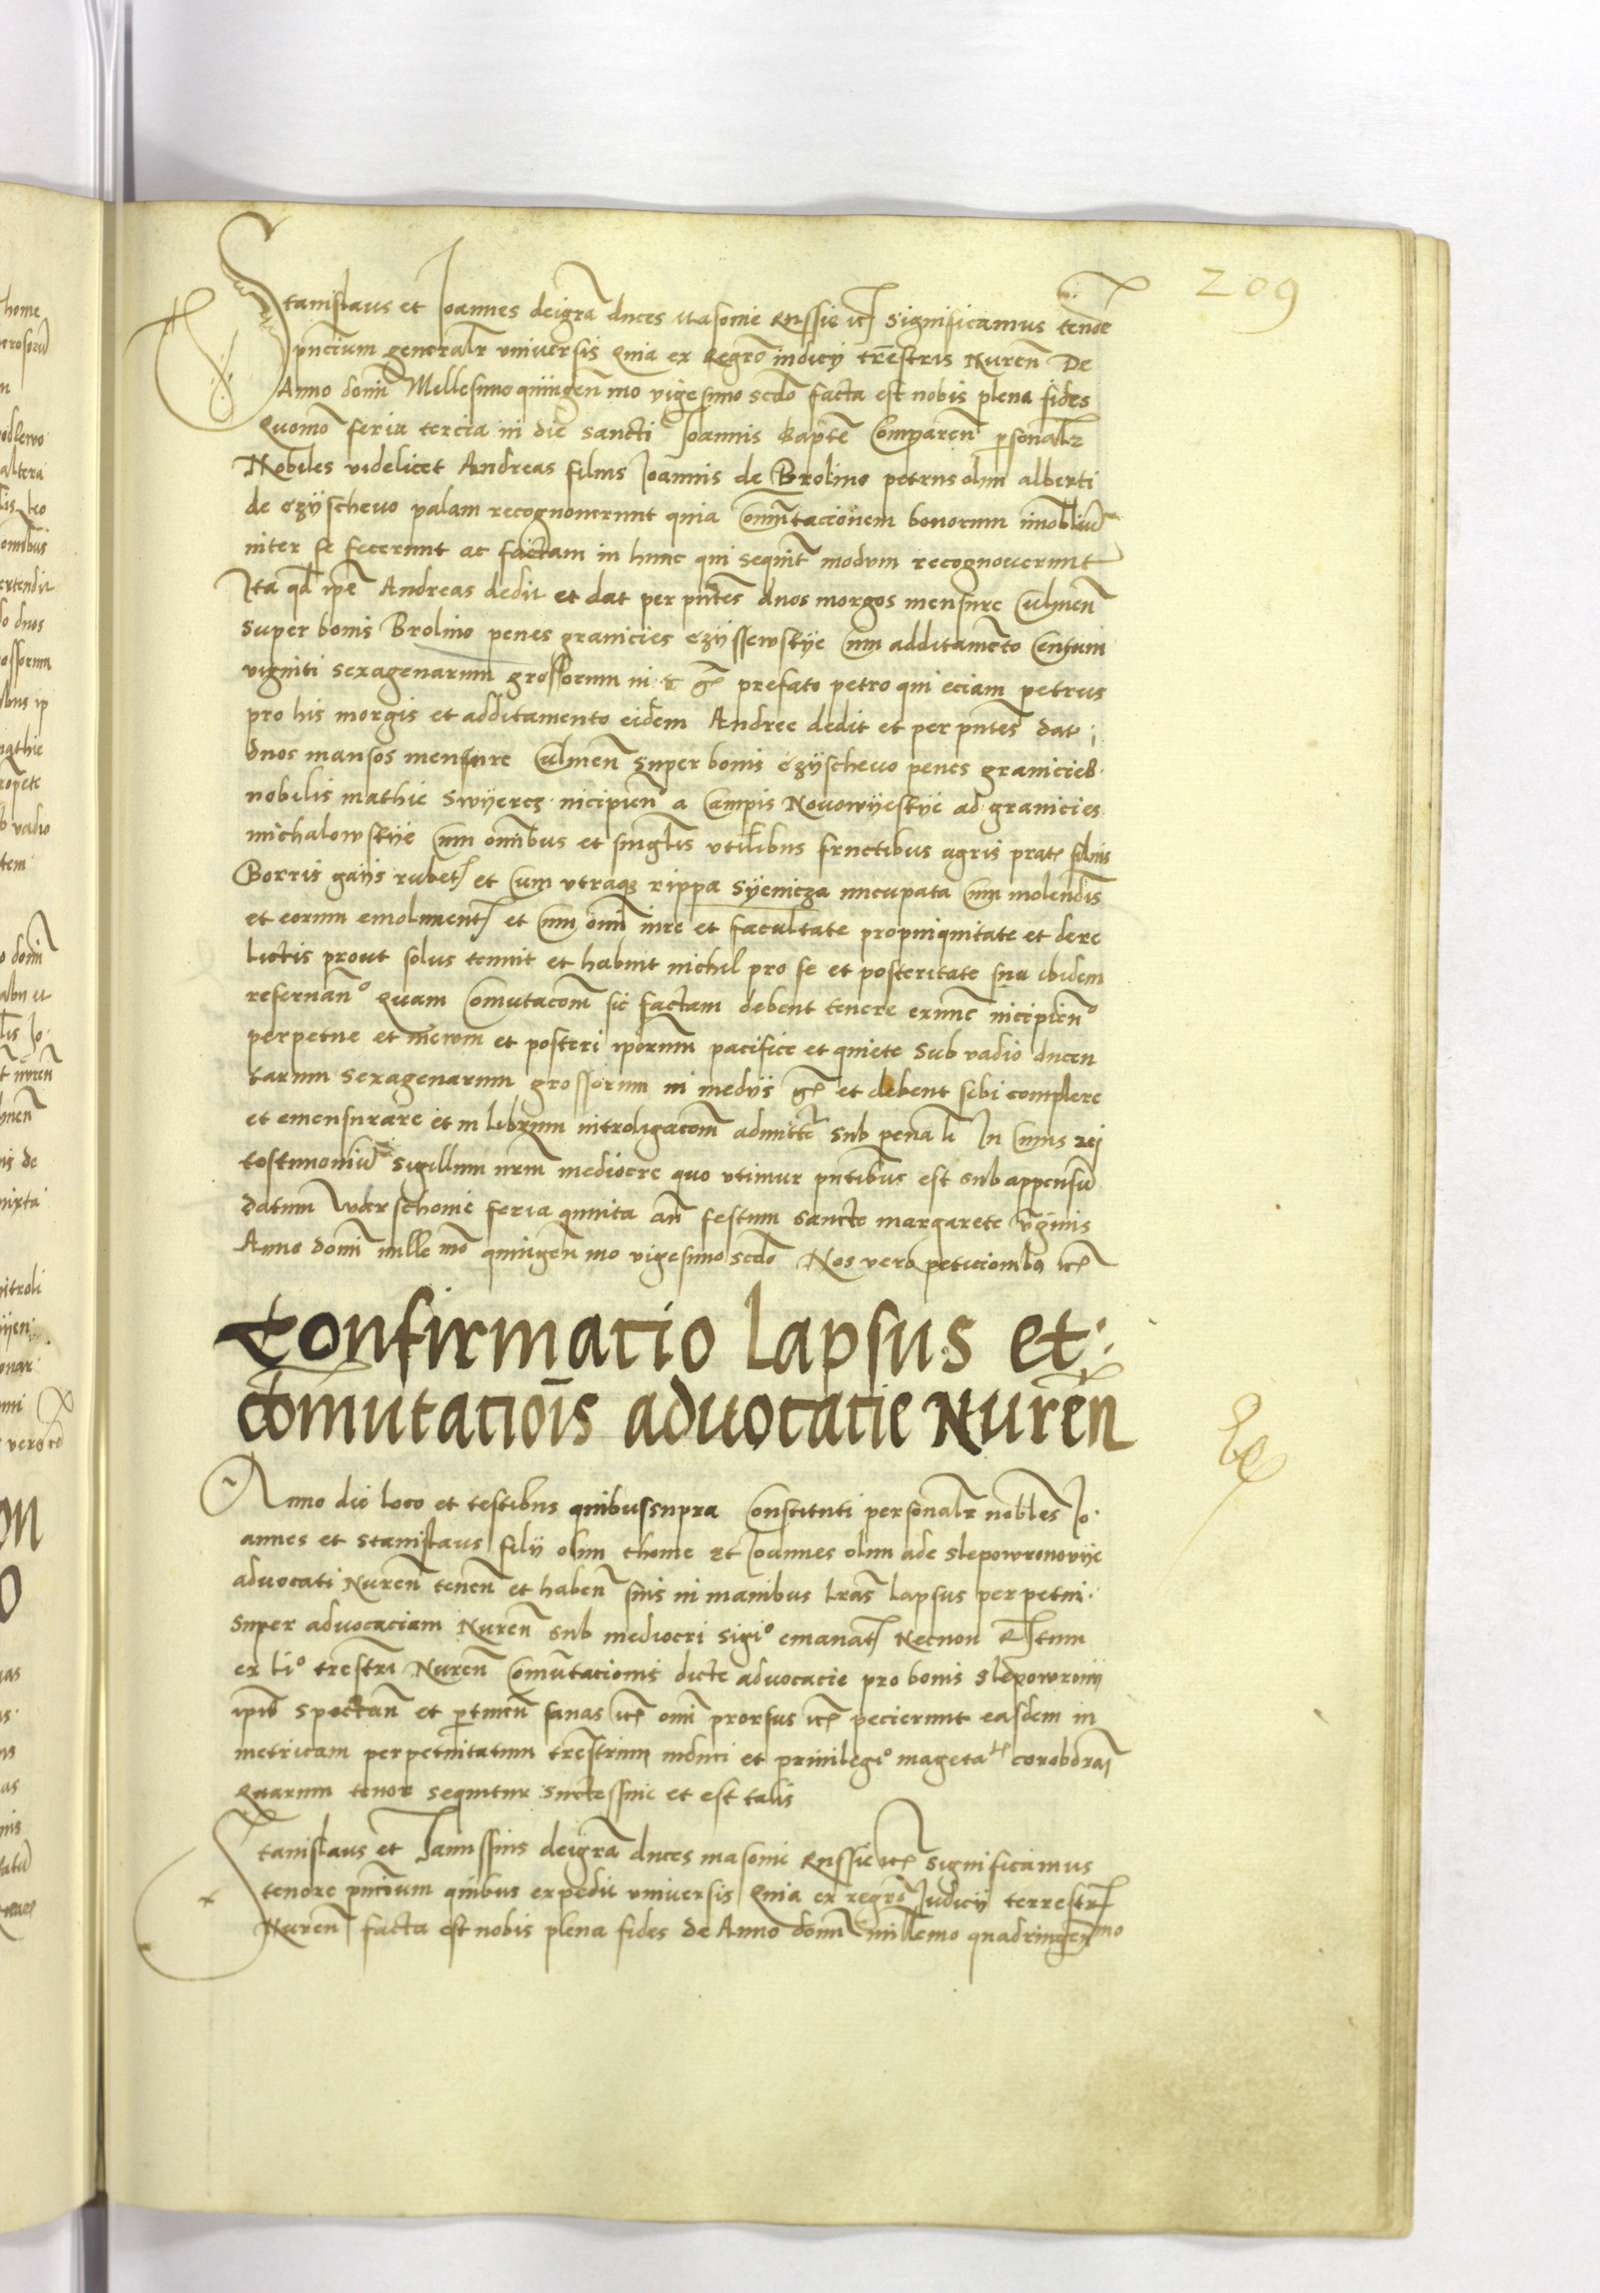 209
Stanislaus et Joannes dei gra duces Masovie Russie etc Significamus tenore
pncium generalr universis Quia ex Regro iudicij trestris Nuren De
Anno domi Millesimo quingen mo vigesimo scdo facta est nobis plena fides
Quomo feria tercia in die sancti Joannis Bapte Comparen psonalr
Nobiles videlicet Andreas filius Joannis de Brolino petrus olim alberti
de czijschevo palam recognoverunt quia Comutacionem bonorum imobiliu
inter se fecerunt ac factam in hunc qui sequit modum recognoverunt
Ita qd ipe Andreas dedit et dat per pntes duos morgos mensure Culmen
super bonis Brolino penes granicies czijssewskije Cum additamento Centum
viginti sexagenarum grossorum in gr prefato petro qui eciam petrus
pro his morgis et additamento eidem Andree dedit et per pntes dat
duos mansos mensure Culmen super bonis czijschevo penes granicies
nobilis mathie Swijercz incipien a Campis Novowijeskije ad granicies
michalowskije Cum omibus et singlis utilibus fructibus agris prat silvis
Borris gaijs rubet et Cum utraqz rippa Sijenicza nucupata Cum molendis
et eorum emolument et Cum omi iure et facultate propinquitate et dere
lictis prout solus tenuit et habuit nichil pro se et posteritate sua ibidem
reservan Quam Comutacom sic factam debent tenere exnunc incipien
perpetue et in evum et posteri ipsorum pacifice et quiete Sub vadio ducen
tarum sexagenarum grossorum in medijs gr et debent sibi complere
et emensurare et in librum introligacom admitte sub pena In Cuius rei
testimoniu Sigillum nrm mediocre quo utimur pntibus est subappensu
datum Varschovie feria quinta an festum sancte margarete virginis
Anno domi mille mo quingen mo vigesimo scdo Nos vero peticionibz etc
Confirmacio lapsus et
Comutaciois advocacie Nuren
Anno die loco et testibus quibus supra Constituti personalr nobiles Jo
annes et Stanislaus filij olim thome et Joannes olim ade Slepowronovije
advocati Nuren tenen et haben suis in manibus lras lapsus perpetui
super advocaciam Nuren sub mediocri sigi emanat Necnon Rtum
ex li trestri Nuren Comutacionis dicte advocacie pro bonis Slepowronij
ipis spectan et ptinen sanas etc omi prorsus etc pecierunt easdem in
metricam perpetuitatum trestrium induci et privilegi mageta coroborari
Quarum tenor sequitur Successive et est talis
Stanislaus et Janussius dei gra duces masovie Russie etc Significamus
tenore pncium quibus expedit universis Quia ex regro Judicij terrestr
Nuren facta est nobis plena fides de Anno domi millemo quadringen mo